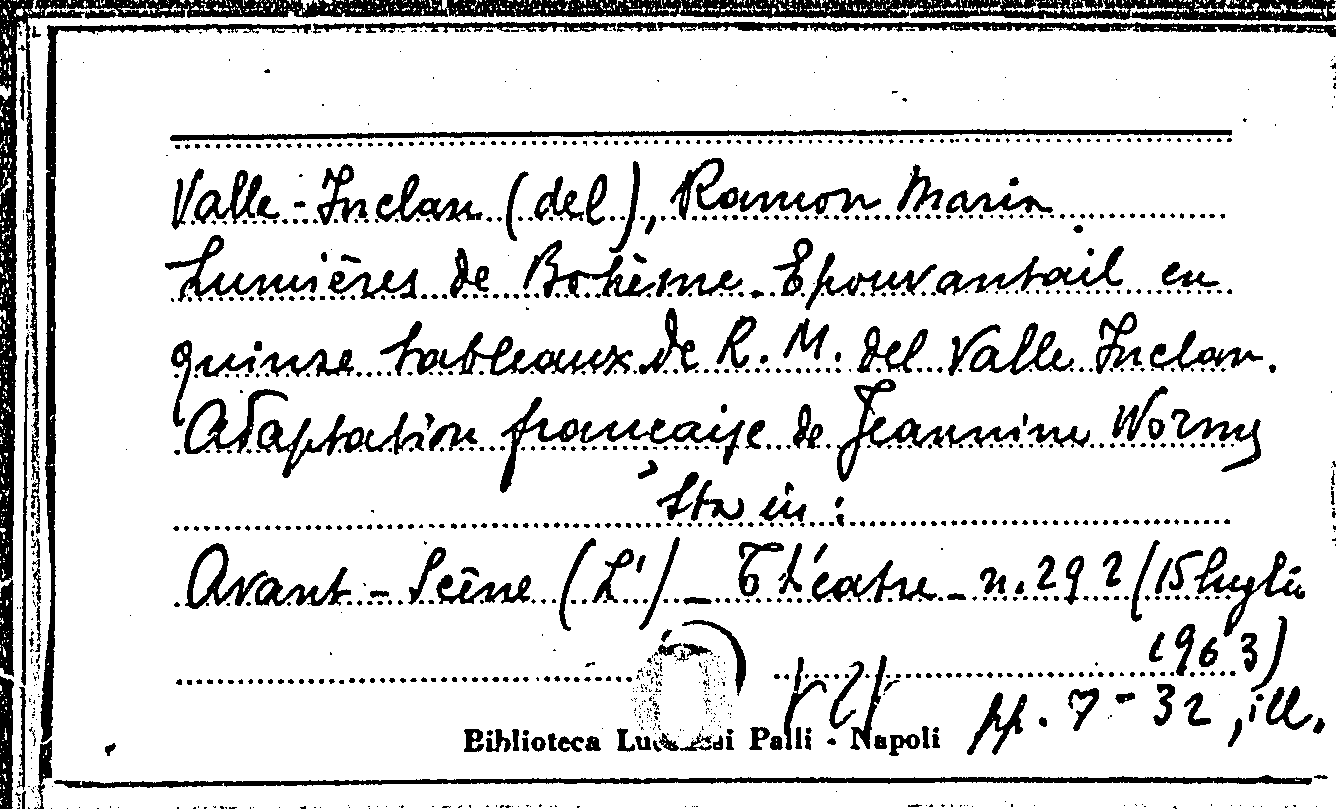 Valle-Inclan (del), Ramon Maria
Lumières de Bohème. Epouvantail en
quinze tableaux de R. M. del Valle Inclan.
Adaptation française de Jeannine Worms
Sta in:
Avant-Scène (L') – Théatre – n. 292 (15 luglio
1963)
pp. 7-32, ill.
Biblioteca Lucchesi Palli - Napoli